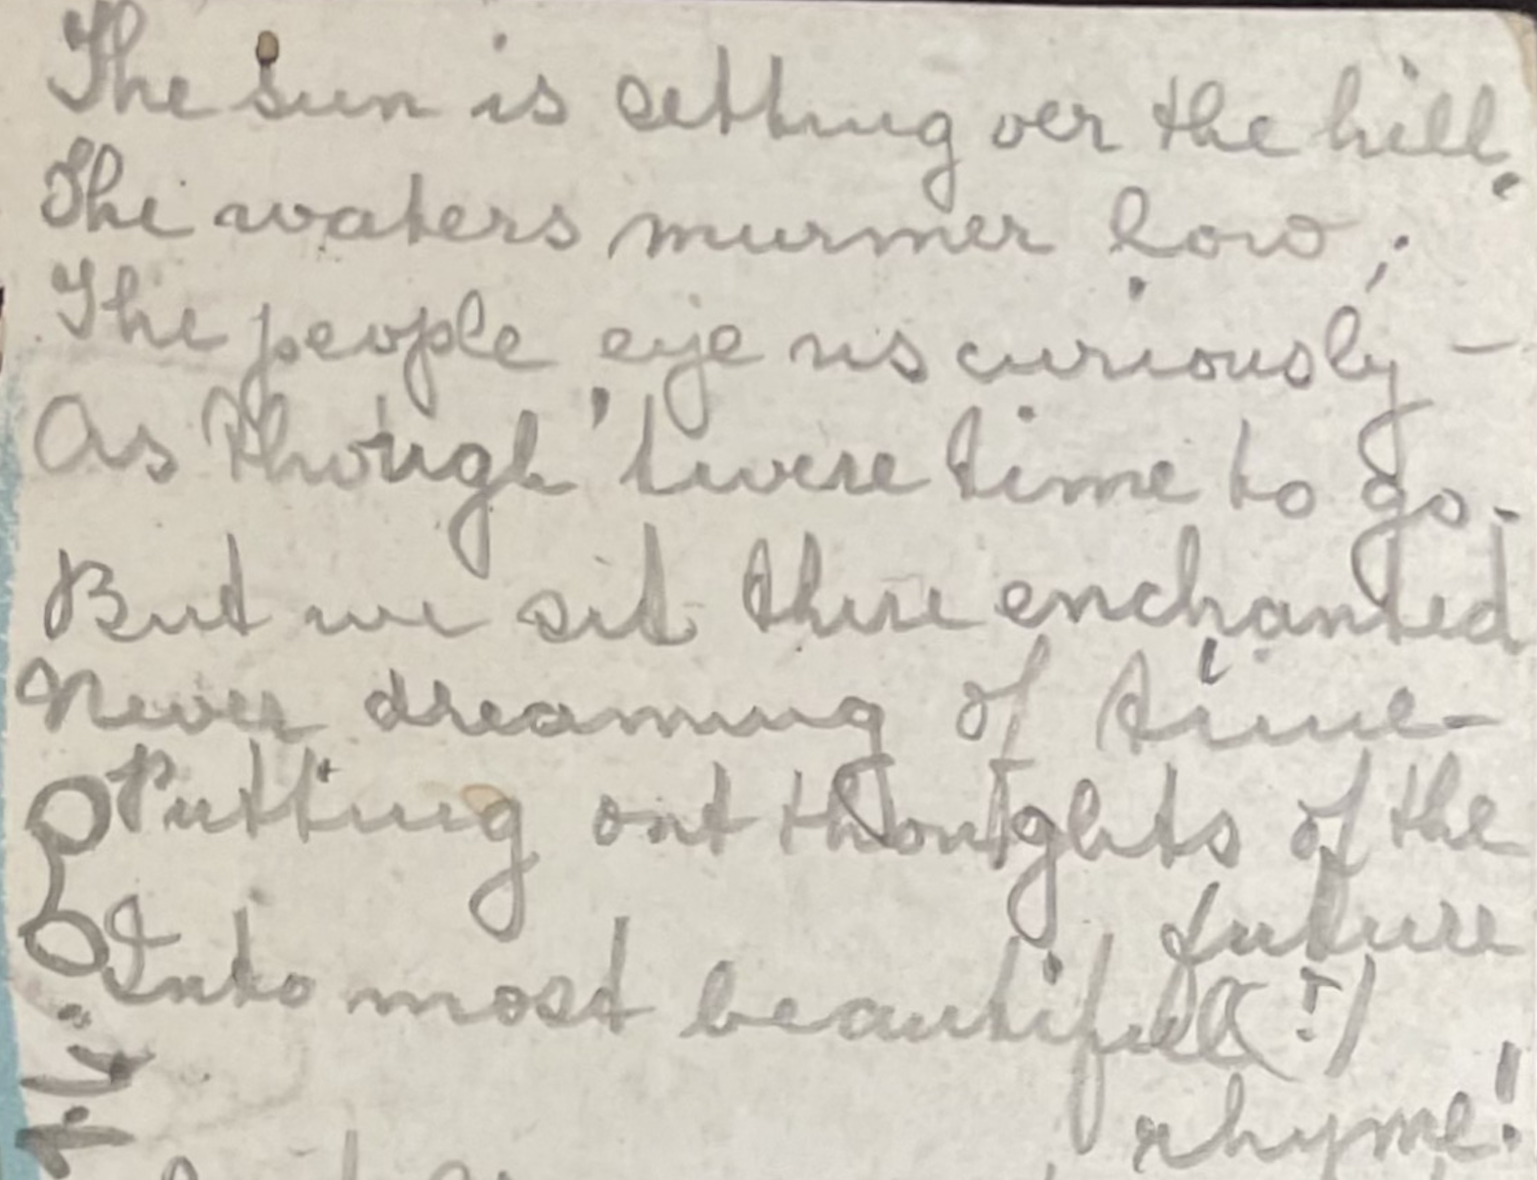 The sun is setting oer the hill.
The waters murmer low;
The people eye us curiously –
As though 'twere time to go.
But we sit there enchanted
Never dreaming of time –
Putting out thoughts of the
future
Into most beautiful (?)
rhyme!